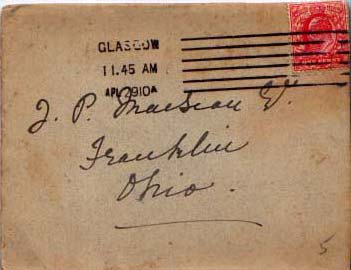 GLASGOW
11.45 AM
AP 29 10
J. P. MacLean
Franklin
Ohio.
5